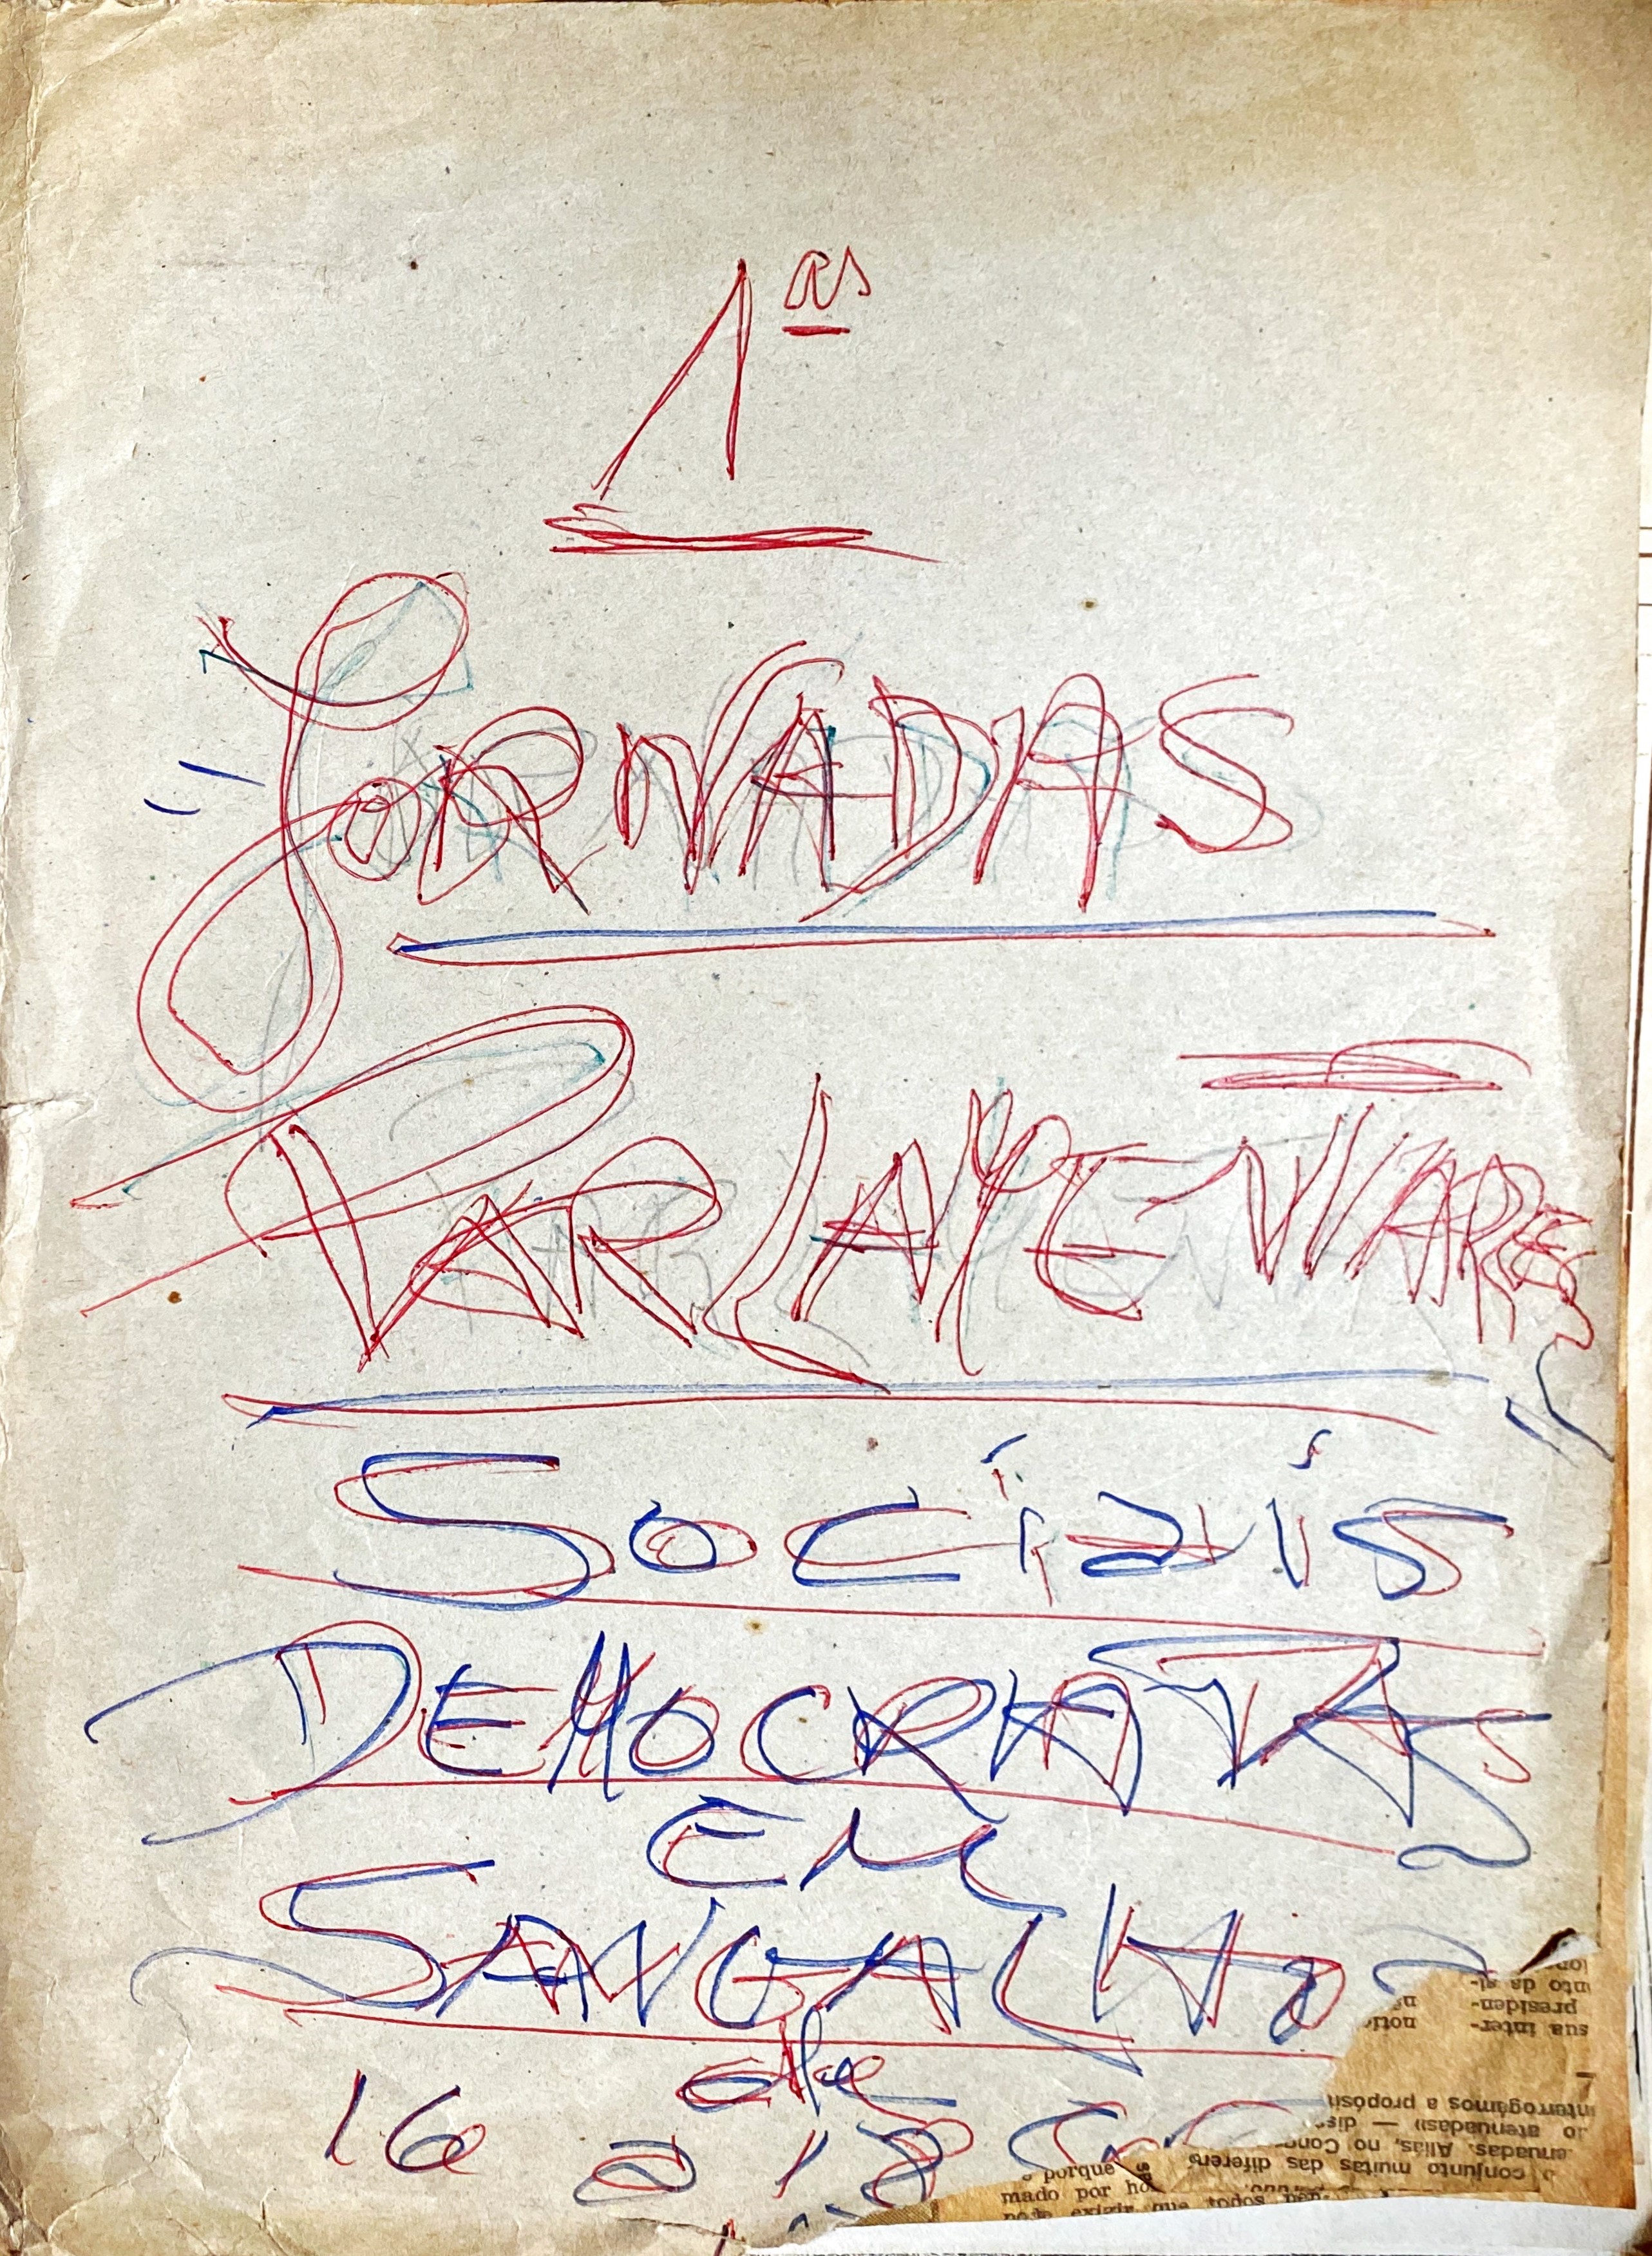 1as
JORNADAS
PARLAMENTARES
Sociais
DEMOCRATAS
EM
SANGALHOS
de
16 a 18
into da si-
presiden-
sua inter-
interrogámos a propósi
do atenuadas» — dis
enuadas. Aliás, no Con
o conjunto muitas das diferens
porque
mado por ho
exigir que todos